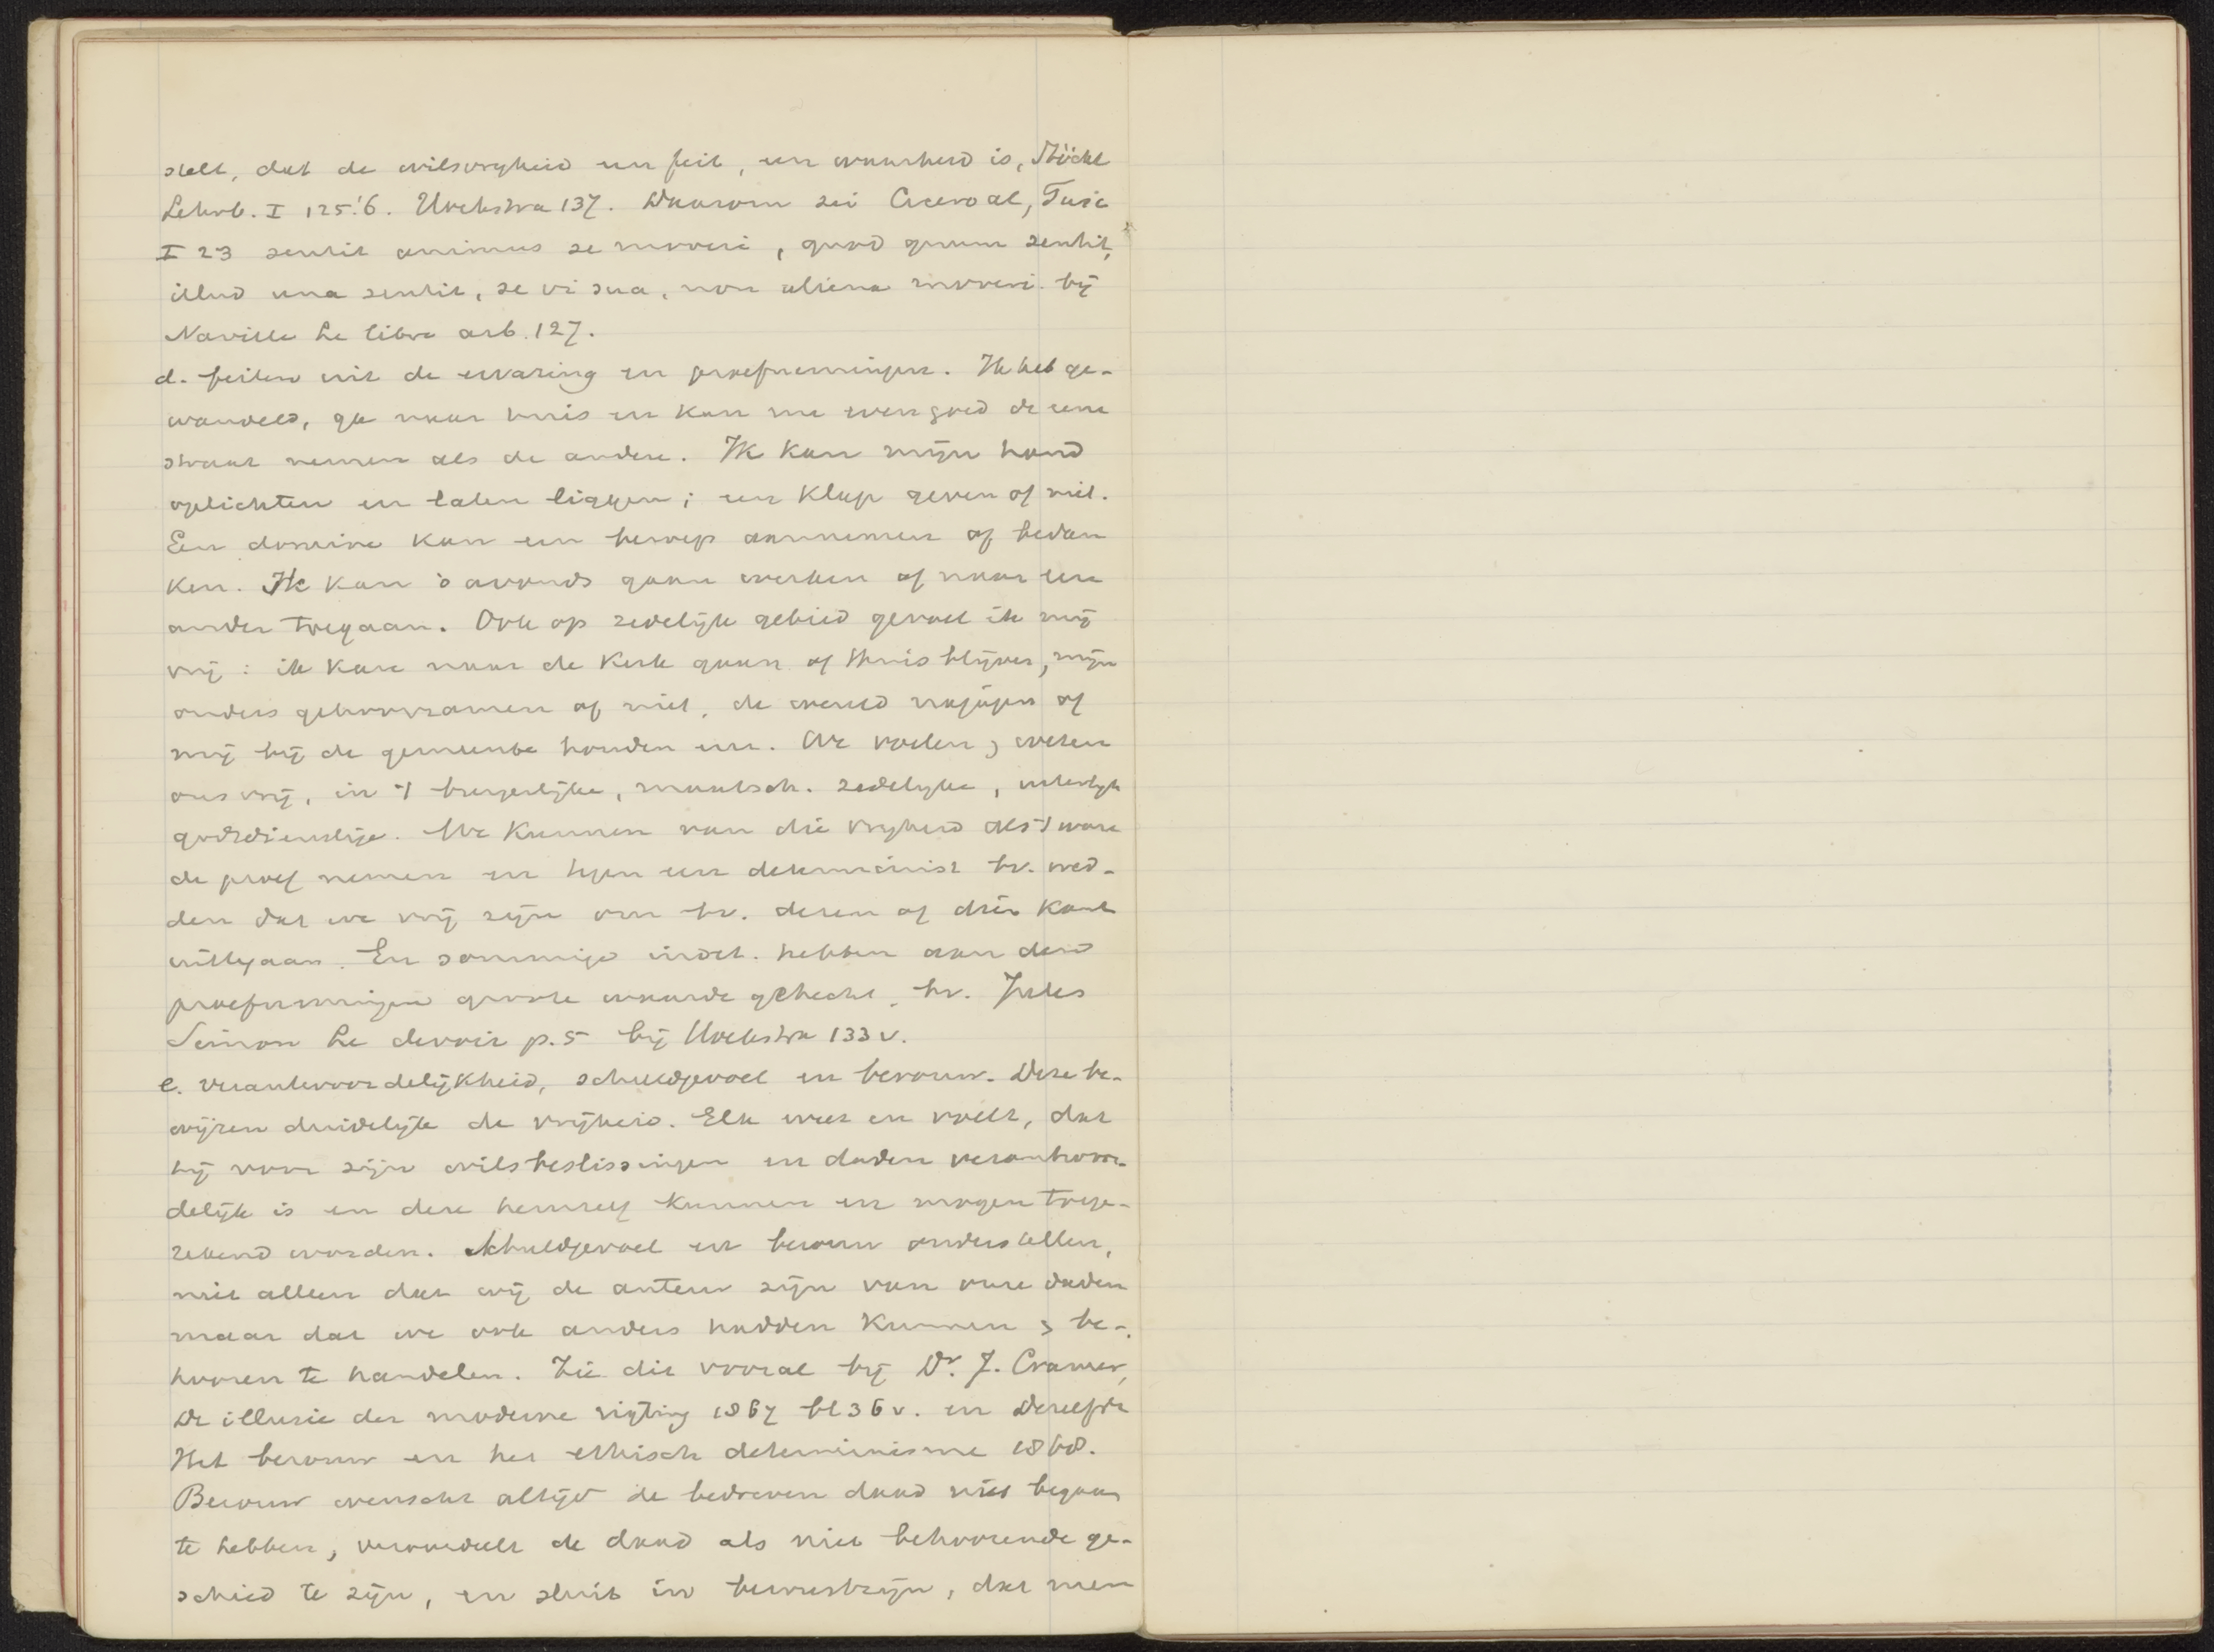 stelt, dat de wilsvrijheid een feit, een waarheid is, Stöckl
Lehrb. I 125.'6. Hoekstra 137. Daarom zei Cicero al, Tusc
I 23 sentit animus se moveri, quod quum sentit,
illud una sentit, se vi sua, non aliena moveri. bij
Naville Le libre arb. 127.
d. feiten uit de ervaring en proefnemingen. Ik heb ge-
wandeld, ga naar huis en kan me even goed de eene
straat nemen als de andere. Ik kan mijn hand
oplichten en laten liggen; een klap geven of niet.
Een dominé kan een beroep aannemen of bedan
ken. Ik kan 's avonds gaan werken of naar een
ander toegaan. Ook op zedelijk gebied gevoel ik mij
vrij: ik kan naar de Kerk gaan of thuis blijven, mijn
ouders gehoorzamen of niet, de wereld najagen of
mij bij de gemeente houden enz. We voelen en weten
ons vrij, in 't burgerlijke, maatsch. zedelijke, uiterlijk
godsdienstige. We kunnen van die vrijheid als 't ware
de proef nemen en tegen een determinist bv. wed-
den dat we vrij zijn om bv. dezen of dien kant
uittegaan. En sommige indet. hebben aan deze
proefnemingen groote waarde gehecht, bv. Jules
Simon Le devoir p. 5 bij Hoekstra 133 v.
e. verantwoordelijkheid, schuldgevoel en berouw. Deze be-
wijzen duidelijk de vrijheid. Elk weet en voelt, dat
hij voor zijn wilsbeslissingen en daden verantwoor-
delijk is en deze hemzelf kunnen en mogen toege-
rekend worden. Schuldgevoel en berouw onderstellen,
niet alleen dat wij de auteur zijn van onze daden
maar dat we ook anders hadden kunnen en be-
hooren te handelen. Zie dit vooral bij Dr. J. Cramer,
De illusie der moderne rigting 1867 bl 36 v. en Dezelfde
Het berouw en het ethisch determinisme 1868.
Berouw wenscht altijd de bedreven daad niet begaan
te hebben, veroordeelt de daad als niet behoorende ge-
schied te zijn, en sluit in bewustzijn, dat men